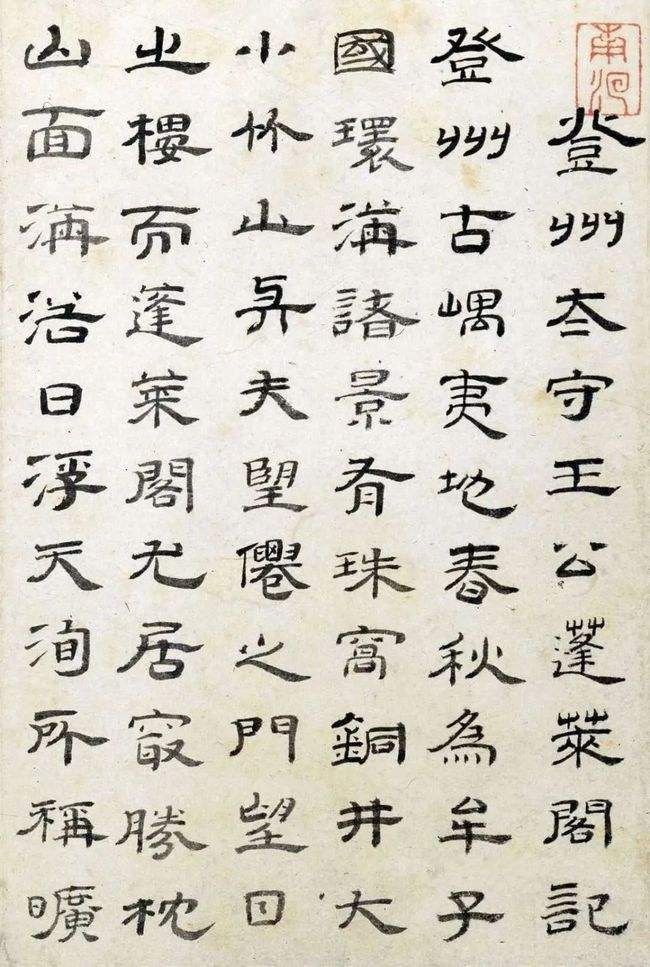 登州夳守王公蓬萊閣記
登州古嵎夷地春秋為牟子
國環海諸景有珠窩銅井大
小竹山與夫望僊之門望日
之樓而蓬萊閣尤居最勝枕
山面海浴日浮天洵所稱曠